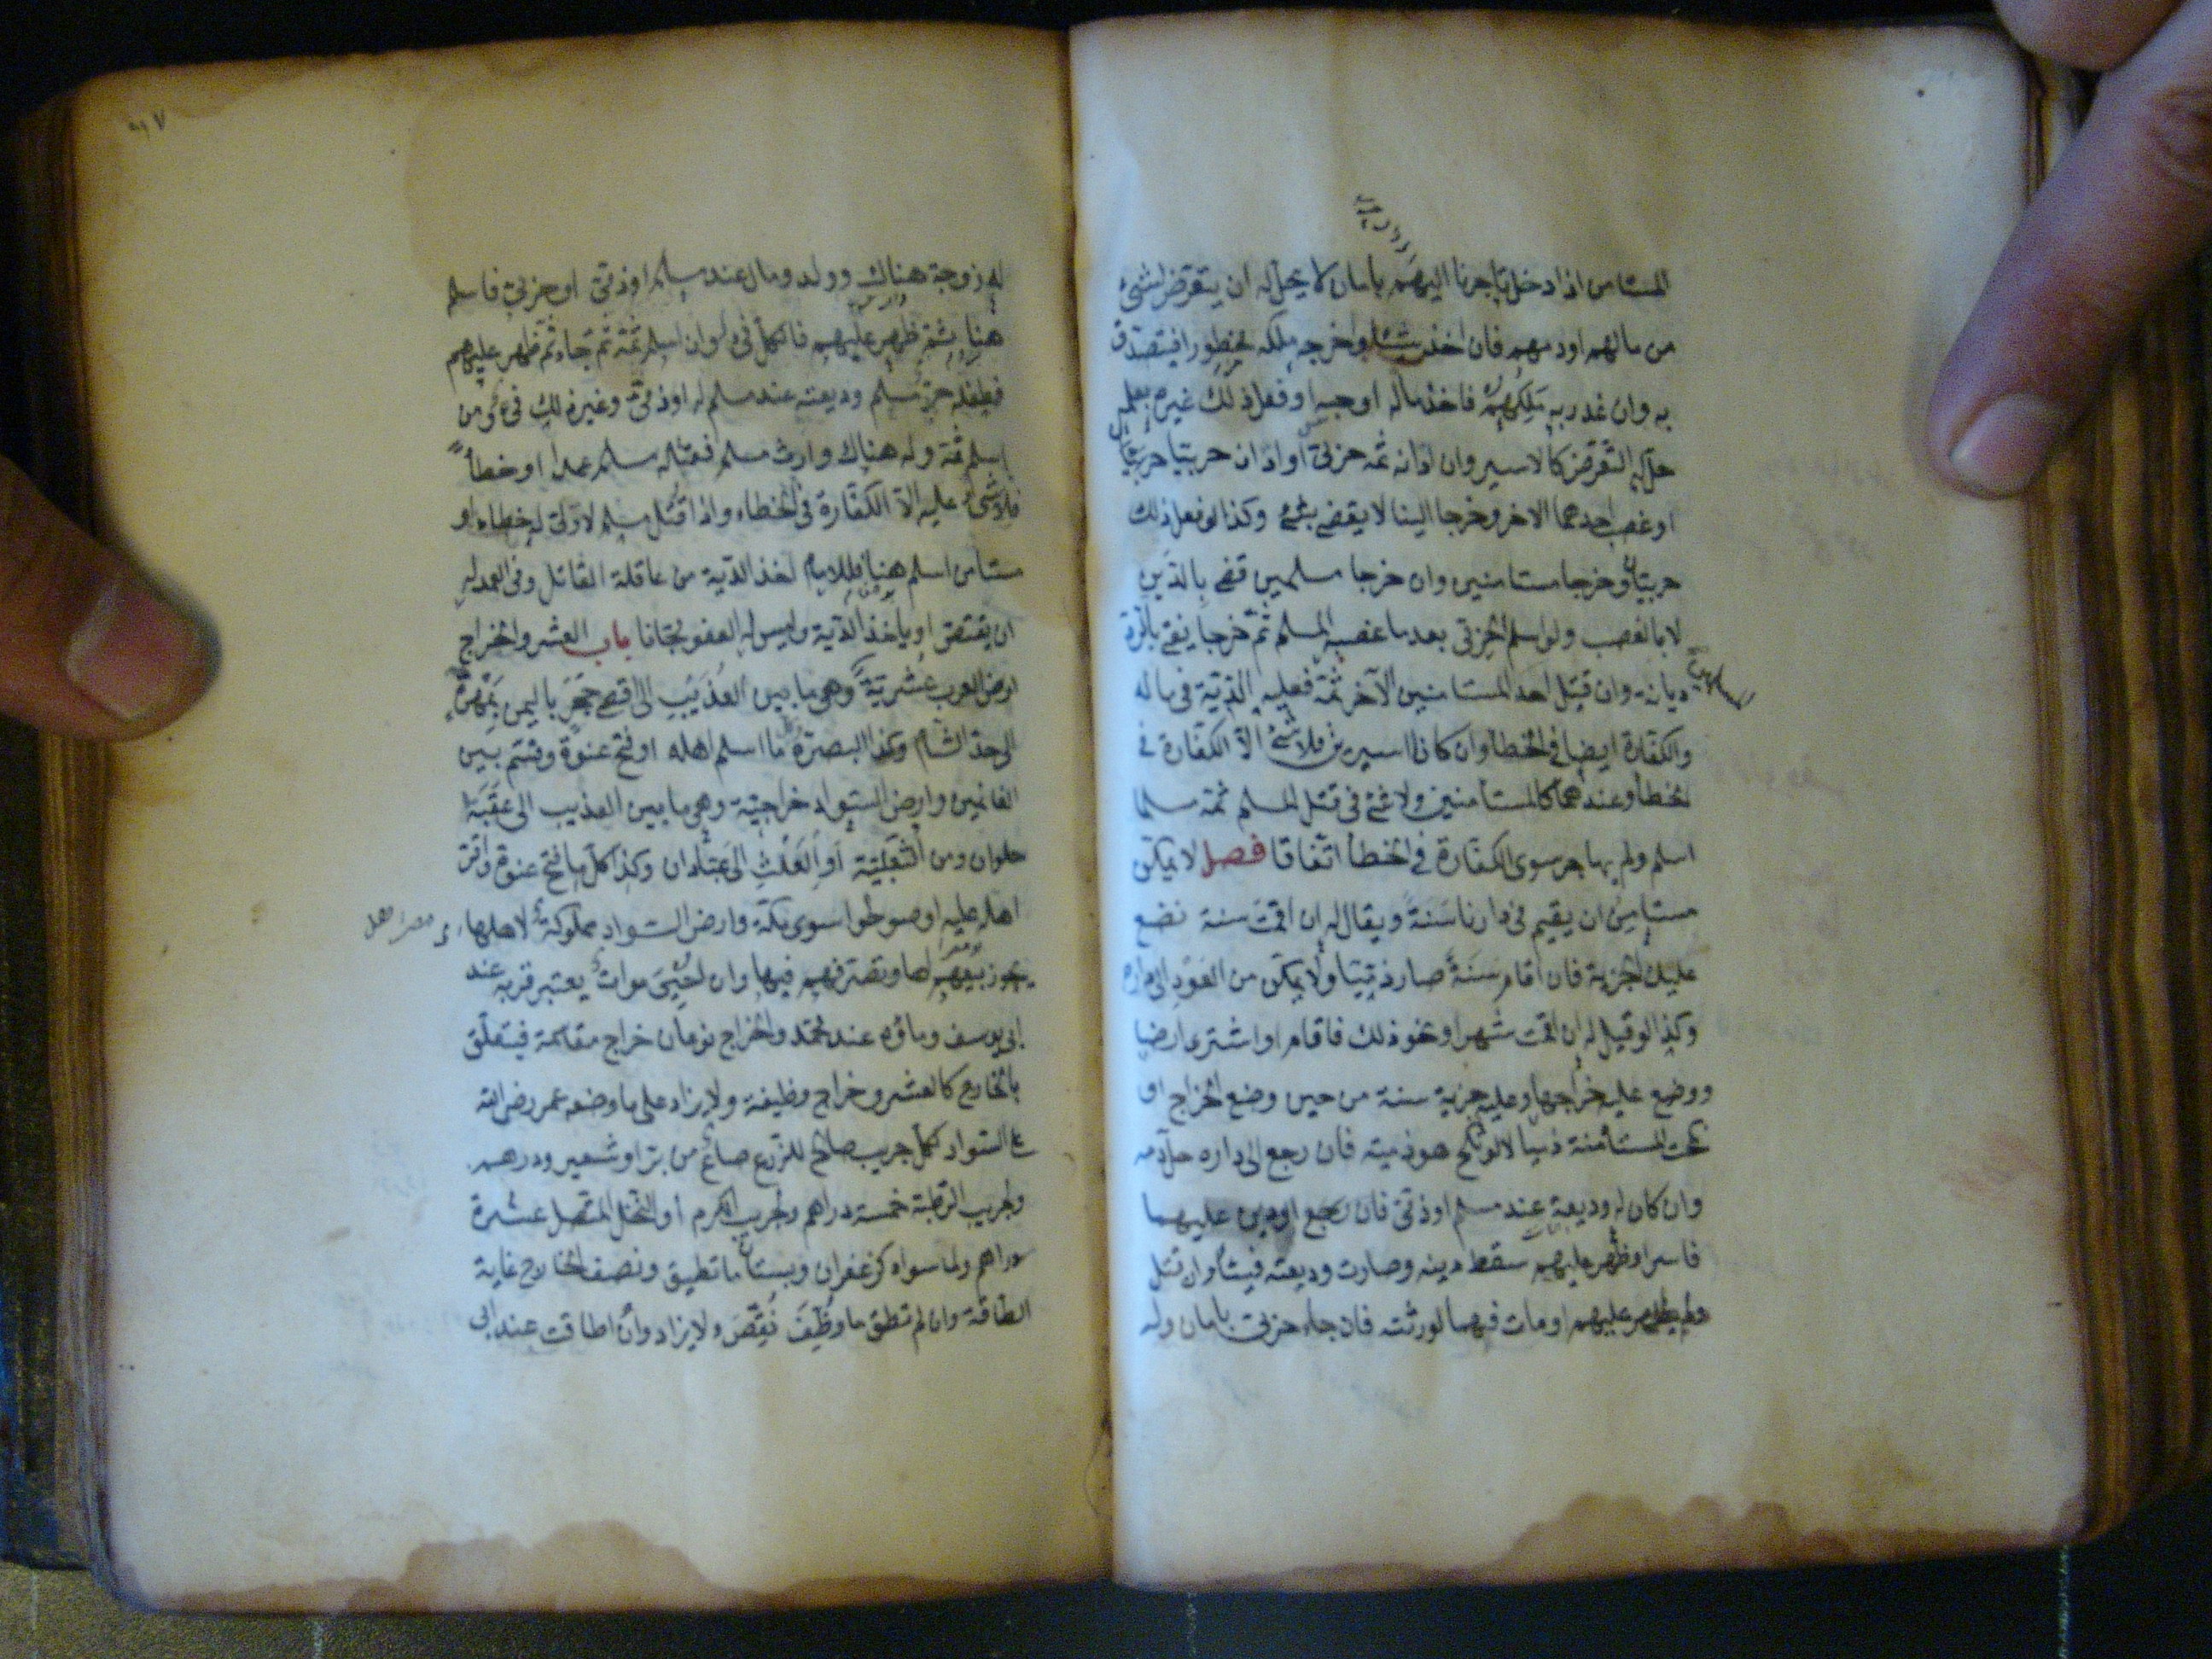 المستامن اذا دخل تاجرنا اليهم بامان لا يحل له ان يتعرض لشئ
من مالهم او دمهم فان اخذ شيئا واخرجه ملكه محظورا فيتصدق
به وان غدر به ملكهم فاخذ ماله او حبسه او فعل ذلك غيره بعلمه
حل له التعرض كالاسير وان ادانه ثمه حربى او ادان حربيا
او غصب احدهما الاخر وخرجا الينا لا يقضى بشئ وكذا لو فعل ذلك
حربيان وخرجا مستامنين وان خرجا مسلمين قضى بالدين
لا بالغصب ولو اسلم الحربى بعد ما غصبه المسلم ثم خرجا يفتى بالرد
ديانة وان قتل احد المستامنين الآخر ثمة فعليه الدية فى ماله
والكفارة ايضا فى الخطأ وان كانا اسيرين فلا شئ الا الكفارة فى
الخطأ وعندهما كالمستأمنين ولا شئ فى قتل المسلم ثمة مسلما
اسلم ولم يهاجر سوى الكفارة فى الخطأ اتفاقا فصل لا يمكن
مستامن ان يقيم فى دارنا سنة ويقال له ان اقمت سنة نضع
عليك الجزية فان اقام سنة صار ذميا ولا يمكن من العود الى داره
وكذا لو قيل له ان اقمت شهرا او نحو ذلك فاقام او اشترى ارضا
ووضع عليه خراجها وعليه جزية سنة من حين وضع الخراج او
نكحت المستأمنة ذميا لا لو نكح هو ذمية فان رجع الى داره حل دمه
وان كان له وديعة عند مسلم او ذمى فان رجع او دين عليهما
فاسر او ظهر عليهم سقط دينه وصارت وديعته فيئا وان قتل
ولم يظهر عليهم او مات فهما لورثته فان جاء حربى بامان وله
له زوجة هناك وولد ومال عند مسلم او ذمى او حربى فاسلم
هنا ثم ظهر عليهم فالكل فئ وان اسلم ثمة ثم جاء ثم ظهر عليهم
فطفله حر مسلم ووديعته عند مسلم له او ذمى وغير ذلك فئ ومن
اسلم ثمة وله هناك وارث مسلم فقتله مسلم عمدا او خطأ
فلا شئ عليه الا الكفارة فى الخطاء واذا قتل مسلم لا ولى له خطاء او
مستامن اسلم هنا فللامام اخذ الدية من عاقلة القاتل وفى العمد له
ان يقتص او يأخذ الدية وليس له العفو مجانا باب العشر والخراج
ارض العرب عشرية وهى ما بين العذيب الى اقصى حجر باليمن بمهرة
الى حد الشام وكذا البصرة وما اسلم اهله او فتح عنوة وقسم بين
الغانمين وارض السواد خراجية وهى ما بين العذيب الى عقبة
حلوان ومن الثعلبية او العلث الى عبادان وكذا كل ما فتح عنوة واقر
اهله عليه او صولحوا سوى مكة وارض السواد مملوكة لاهلها
يجوز بيعهم لها وتصرفهم فيها وان احيى موات يعتبر قربه عند
ابى يوسف وماؤه عند محمد والخراج نوعان خراج مقاسمة فيتعلق
بالخارج كالعشر وخراج وظيفة ولا يزاد على ما وضعه عمر رضى الله
على السواد لكل جريب صالح للزرع صاع من بر او شعير ودرهم
ولجريب الرطبة خمسة دراهم ولجريب الكرم او النخل المتصل عشرة
دراهم ولما سواه كزعفران وبستان ما تطيق ونصف الخارج غاية
الطاقة وان لم تطق ما وظف نقص ولا يزاد وان اطاقت عند ابى